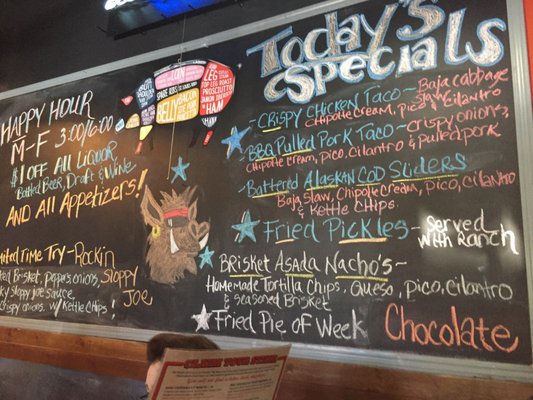 HAPPY HOUR
M-F 3:00/6:00
$1 OFF All LIQUOR
Bottled Beer, Draft & Wine
AND All Appetizers!
Time Try-Rockin
Brisket, onions, Sloppy
Sloppy Joe Sauce, Joe
Crispy onions, w/ Kettle Chips!
LOIN
SPARE RIBS
BELLY
BACON
LEG
TOP LEG ROAST
PROSCIUTTO
HAM
Today's
Specials
-Crispy Chicken Taco- Baja Cabbage
Slaw, Cilantro
Chipotle Cream, Pico
BBQ Pulled Pork Taco- crispy onions,
Chipotle cream, Pico, Cilantro & pulled pork
-Battered Alaskan Cod Sliders
Baja Slaw, Chipotle Cream, Pico, Cilantro
& Kettle Chips.
-Fried Pickles- Served
with Ranch
Brisket Asada Nacho's-
Homemade Tortilla Chips, Queso, pico, cilantro
& seasoned Brisket
Fried Pie of Week Chocolate